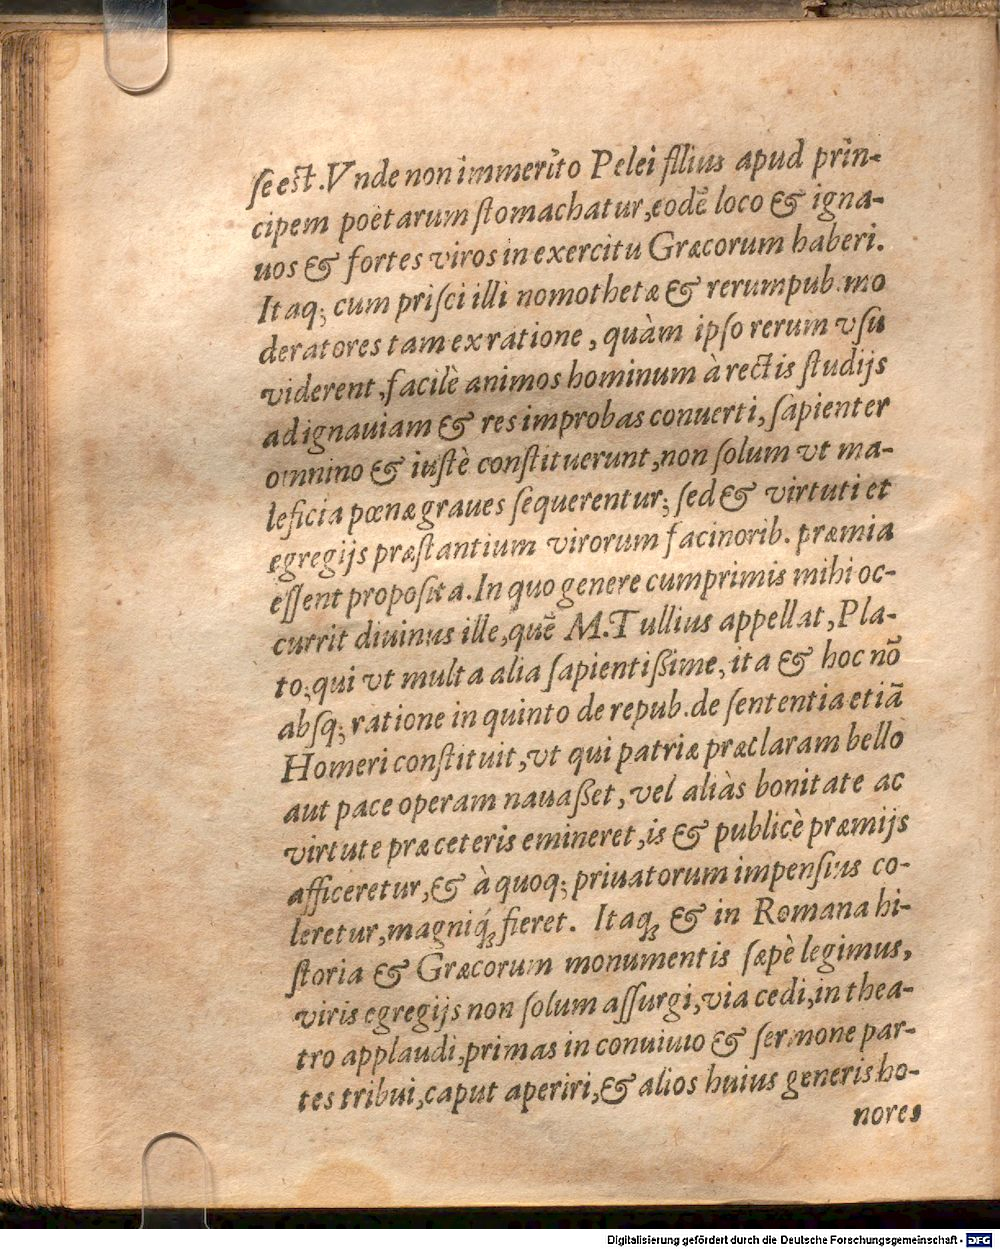 ſe est. Vnde non immerìto Pelei filius apud prin-
cipem poëtarum ſtomachatur, eodē loco & igna-
uos & fortes viros in exercitu Græcorum haberi.
Itaq; cum priſci illi nomothetæ & rerumpub. mo
deratores tam ex ratione, quàm ipſo rerum vſu
viderent, facilè animos hominum à rectis ſtudijs
ad ignauiam & res improbas conuerti, ſapienter
omnino & iuſtè conſtituerunt, non ſolum vt ma-
leficia pœnæ graues ſequerentur; ſed & virtuti et
egregijs præſtantium virorum facinorib. præmia
eſſent propoſita. In quo genere cumprimis mihi oc-
currit diuinus ille, quē M. Tullius appellat, Pla-
to; qui vt multa alia ſapientißime, ita & hoc nō
abſq; ratione in quinto de repub. de ſententia etiā
Homeri conſtituit, vt qui patriæ præclaram bello
aut pace operam nauaßet, vel aliàs bonitate ac
virtute præ ceteris emineret, is & publicè præmijs
afficeretur, & à quoq; priuatorum impenſius co-
leretur, magniq́; fieret. Itaq; & in Romana hi-
ſtoria & Græcorum monumentis ſæpè legimus,
viris egregijs non ſolum aſſurgi, via cedi, in thea-
tro applaudi, primas in conuiuio & ſermone par-
tes tribui, caput aperiri, & alios huius generis ho-
nores
Digitalisierung gefördert durch die Deutsche Forschungsgemeinschaft - DFG